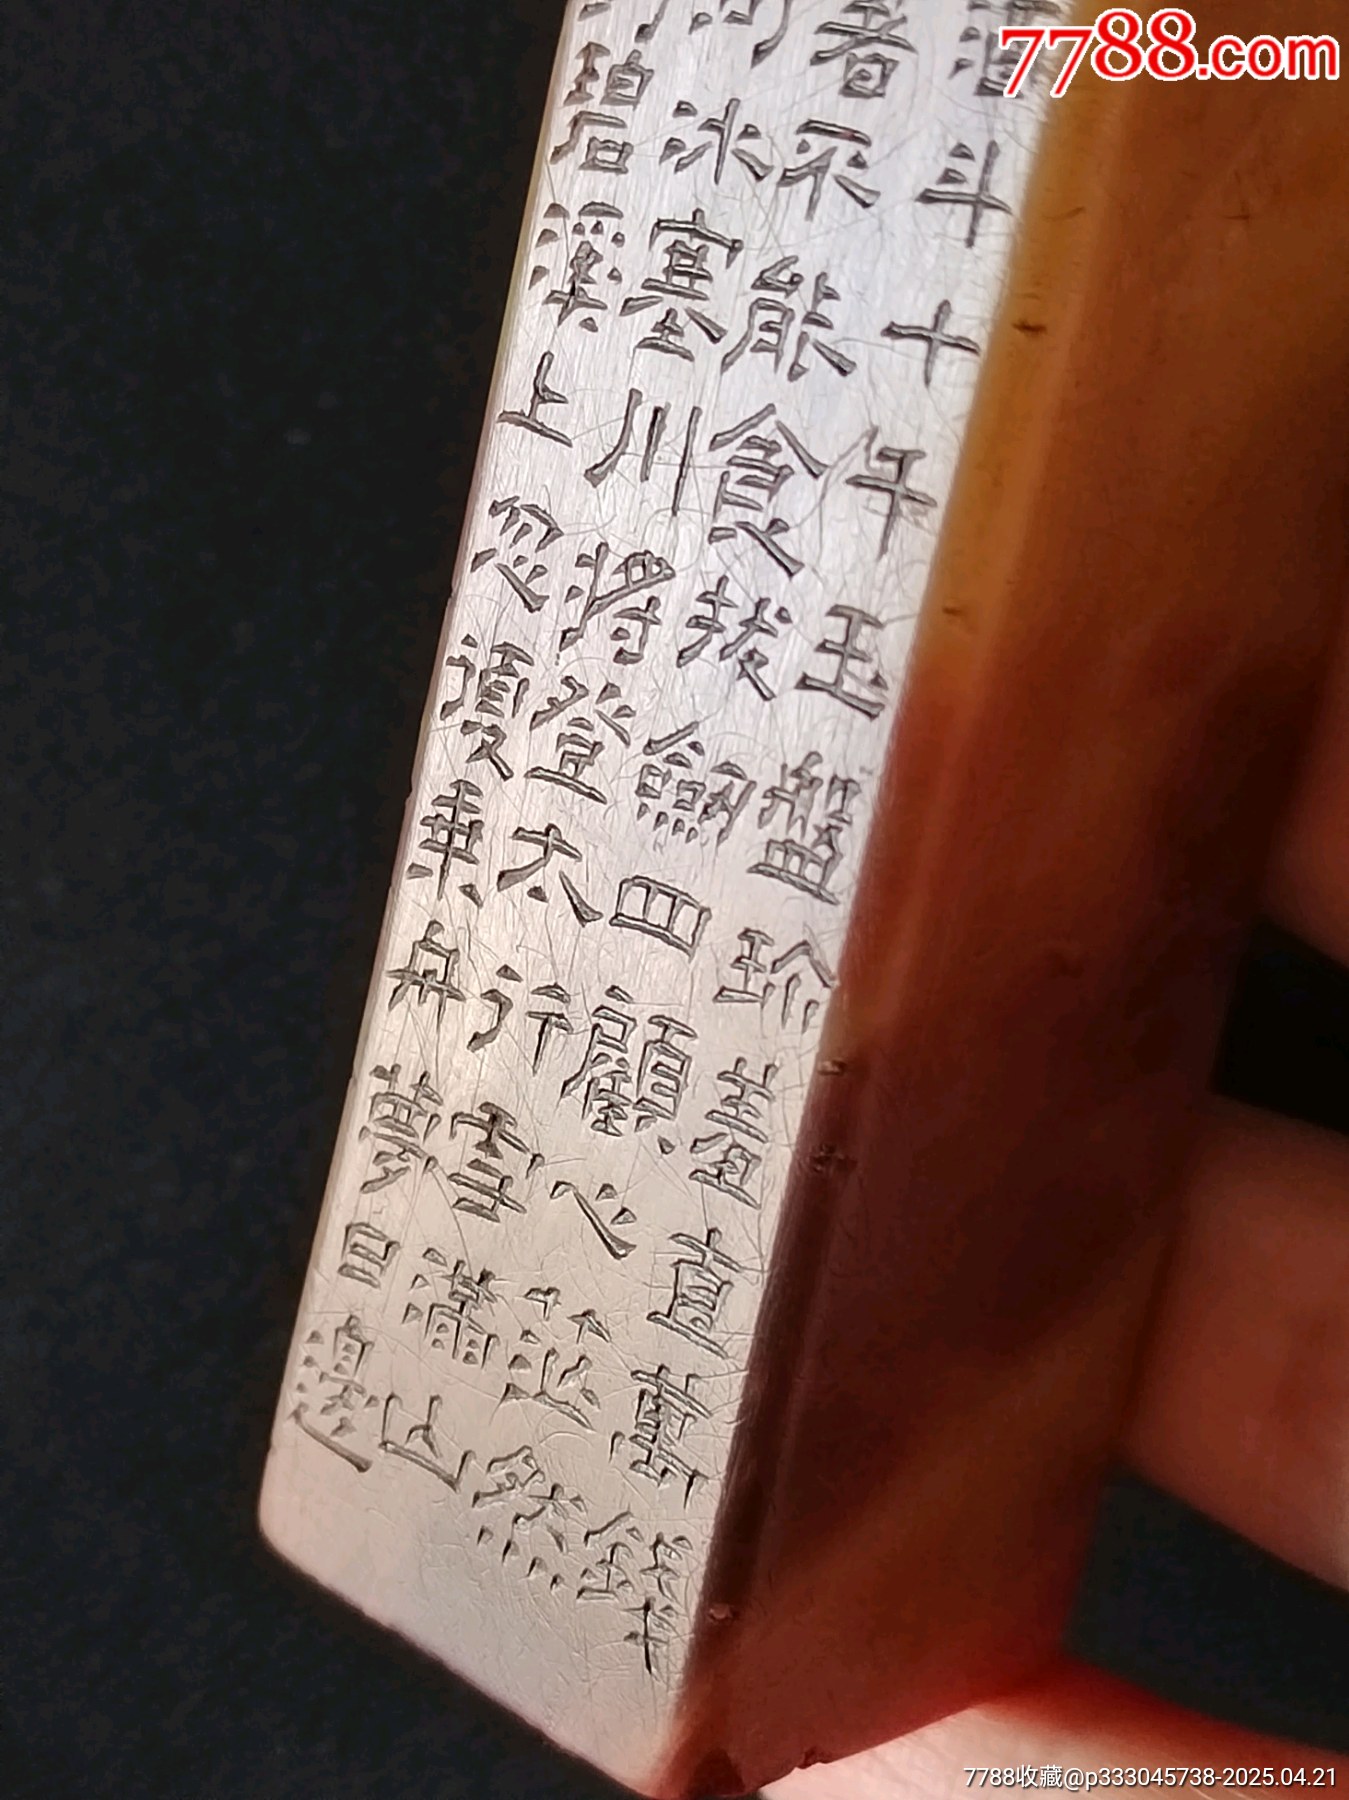 酒斗十千玉盤珍羞直萬錢
者不能食拔劍四顧心茫然
河冰塞川將登太行雪滿山
碧溪上忽復乘舟夢日邊
7788.com
7788收藏@p333045738-2025.04.21